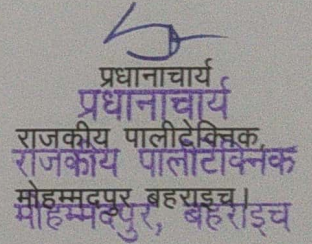 प्रधानाचार्य
प्रधानाचार्य
राजकीय पालीटेक्निक,
राजकीय पालीटेक्निक
मोहम्मदपुर, बहराइच।
मोहम्मदपुर, बहराइच